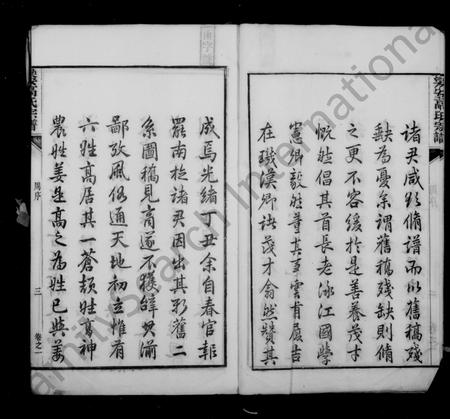 諸君咸欲修譜而以舊稿殘
缺為憂余謂舊稿殘缺則修
之更不容緩於是善養茂才
慨然倡其首長老泳江國學
憲卿毅然董其事雲有履吉
在璣漢卿諸茂才翕然贊其
成焉光緒丁丑余自春官報
罷南旋諸君因出其新舊二
系圖稿見商遂不獲辭焉溯
鄙啟風俗通天地初立惟有
六姓高居其一蒼頡姓篇神
農姓姜是高之為姓已與姜
高氏宗譜
周序
三
卷之一
FamilySearch International